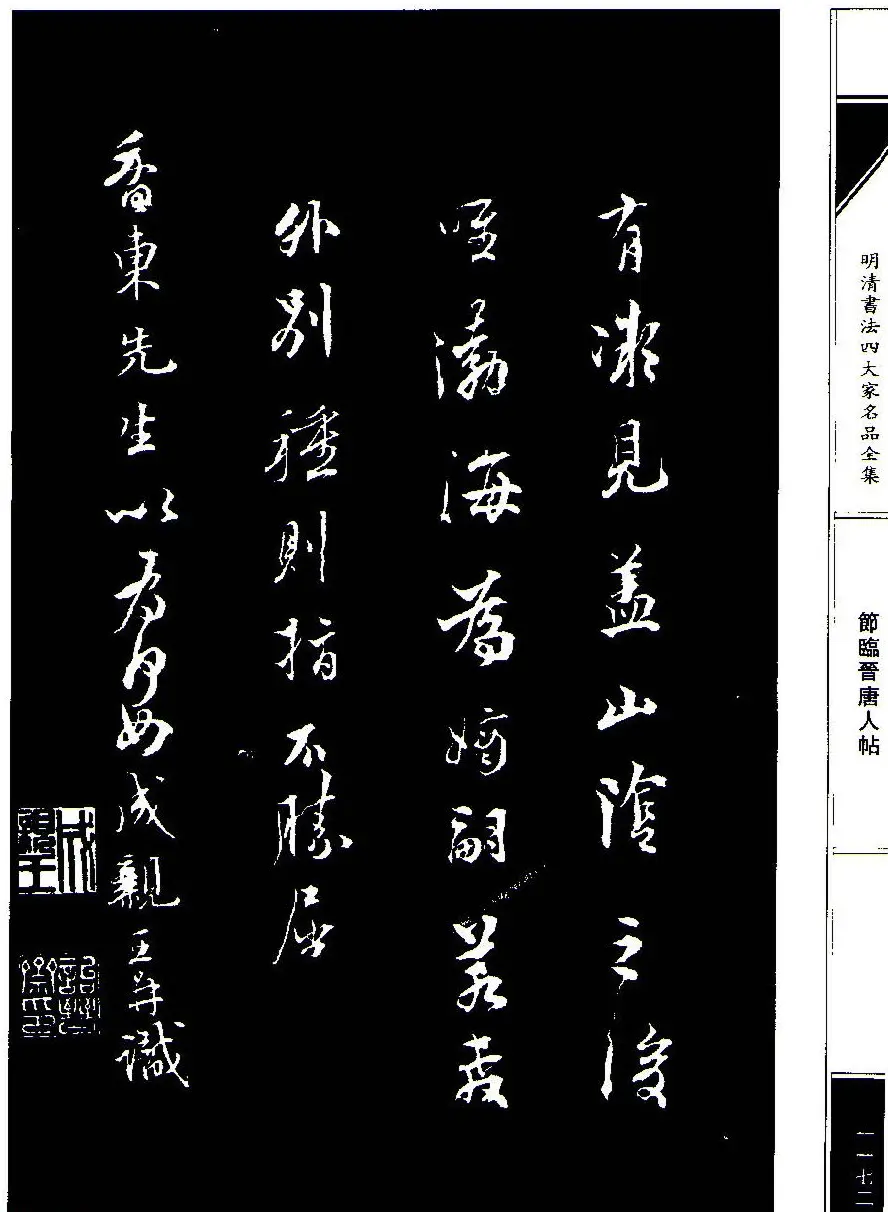 有淑見蓋山陰之後
唯渤海為嫡嗣若教
外別種則指不勝屈
香東先生以為何如成親王并識
成親王
明清書法四大家名品全集
節臨晉唐人帖
一一七二